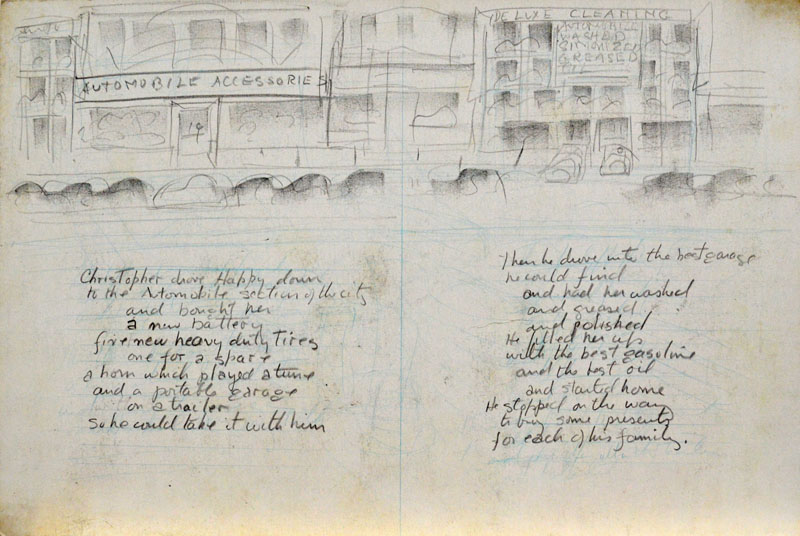 AUTOMOBILE ACCESSORIES
DELUXE CLEANING
AUTOMOBILES
WASHED
SIMONIZED
GREASED
Christopher drove Happy down
to the Automobile section of the city
and bought her
a new battery
five new heavy duty Tires
one for a spare
a horn which played a tune
and a portable garage
on a trailer
so he could take it with him
Then he drove into the best garage
he could find
and had her washed
and greased
and polished
He filled her up
with the best gasoline
and the best oil
and started home
He stopped on the way
to buy some presents
for each of his family.